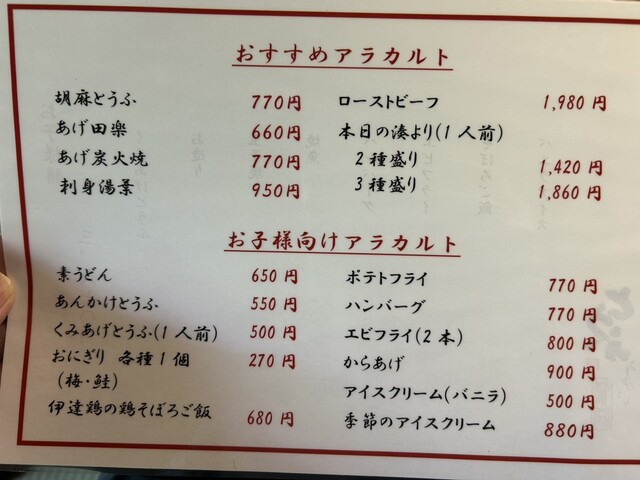 おすすめアラカルト
胡麻とうふ 770円
あげ田楽 660円
あげ炭火焼 770円
刺身湯葉 950円
ローストビーフ 1,980円
本日の湊より(1人前)
2種盛り 1,420円
3種盛り 1,860円
お子様向けアラカルト
素うどん 650円
あんかけとうふ 550円
くみあげとうふ(1人前) 500円
おにぎり 各種1個 270円
(梅・鮭)
伊達鶏の鶏そぼろご飯 680円
ポテトフライ 770円
ハンバーグ 770円
エビフライ(2本) 800円
からあげ 900円
アイスクリーム(バニラ) 500円
季節のアイスクリーム 880円